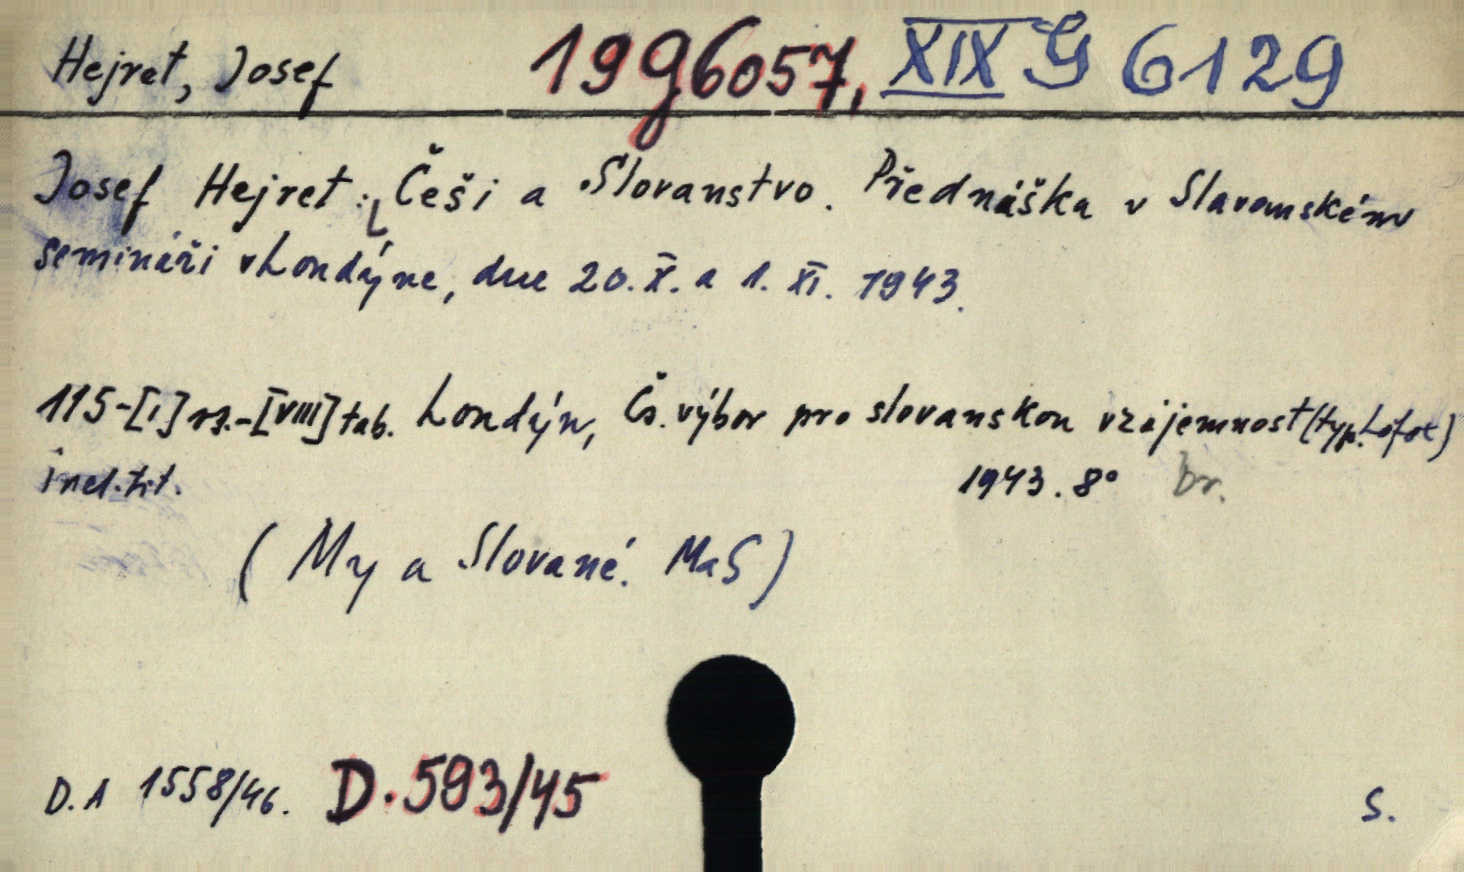 Hejret, Josef 19g6057, XIX G 6129
Josef Hejret: Češi a Slovanstvo. Přednáška v Slavanském
semináři v Londýne, dne 20. X. a 1. XI. 1943.
115-[I] rz.-[VIII] tab. Londýn, Čs. výbor pro slovanskou vzájemnost (typ. Lofox)
incl. tit. 1943. 8° br.
(My a Slované. MaS)
D. A 1558/46. D. 593/45 S.